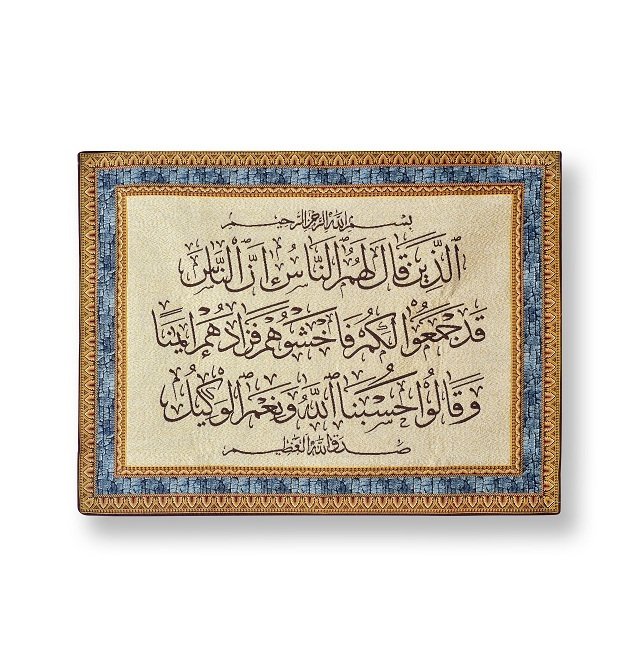 بسم الله الرحمن الرحيم
ٱلَّذِينَ قَالَ لَهُمُ ٱلنَّاسُ إِنَّ ٱلنَّاسَ
قَدْ جَمَعُوا۟ لَكُمْ فَٱخْشَوْهُمْ فَزَادَهُمْ إِيمَٰنًا
وَقَالُوا۟ حَسْبُنَا ٱللَّهُ وَنِعْمَ ٱلْوَكِيلُ
صدق الله العظيم